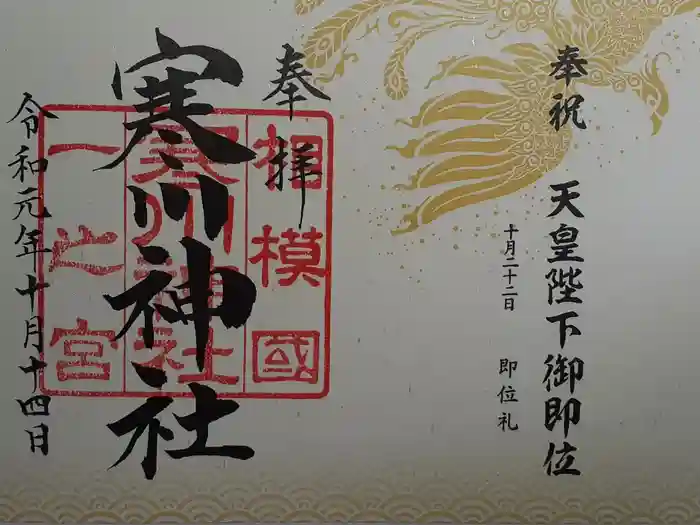 奉祝　天皇陛下御即位
十月二十二日　即位礼
奉拝
相模國
寒川神社
寒川神社
一之宮
令和元年十月十四日